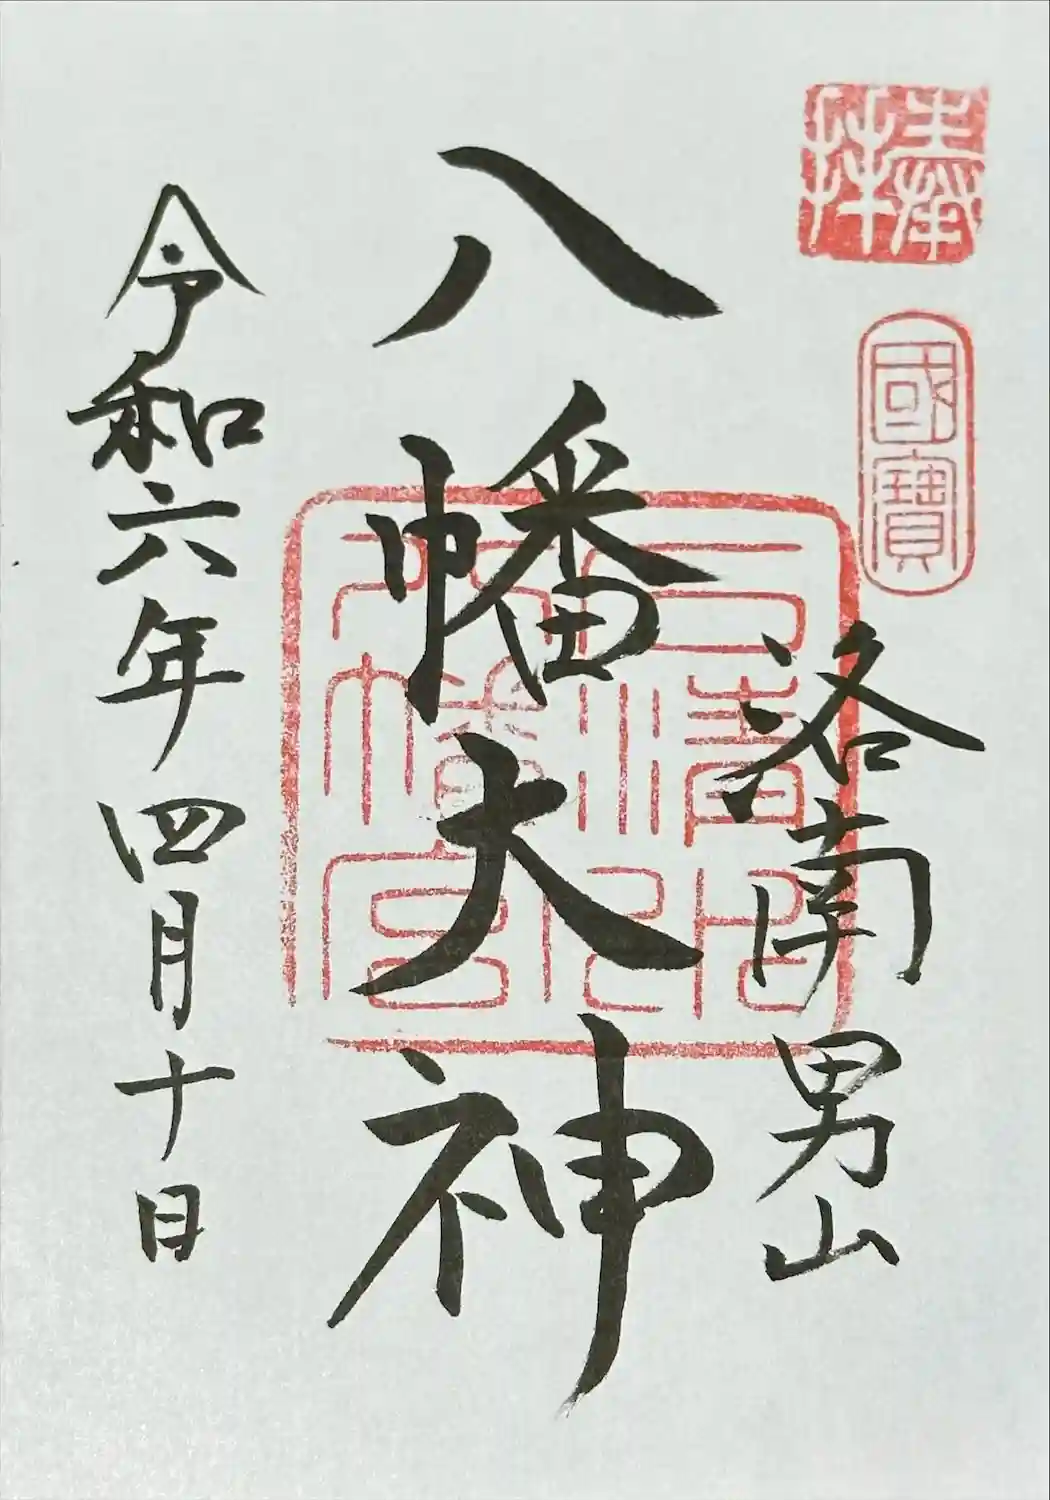 奉拝
國寳
洛南男山
八幡大神
石清水八幡宮
令和六年四月十日